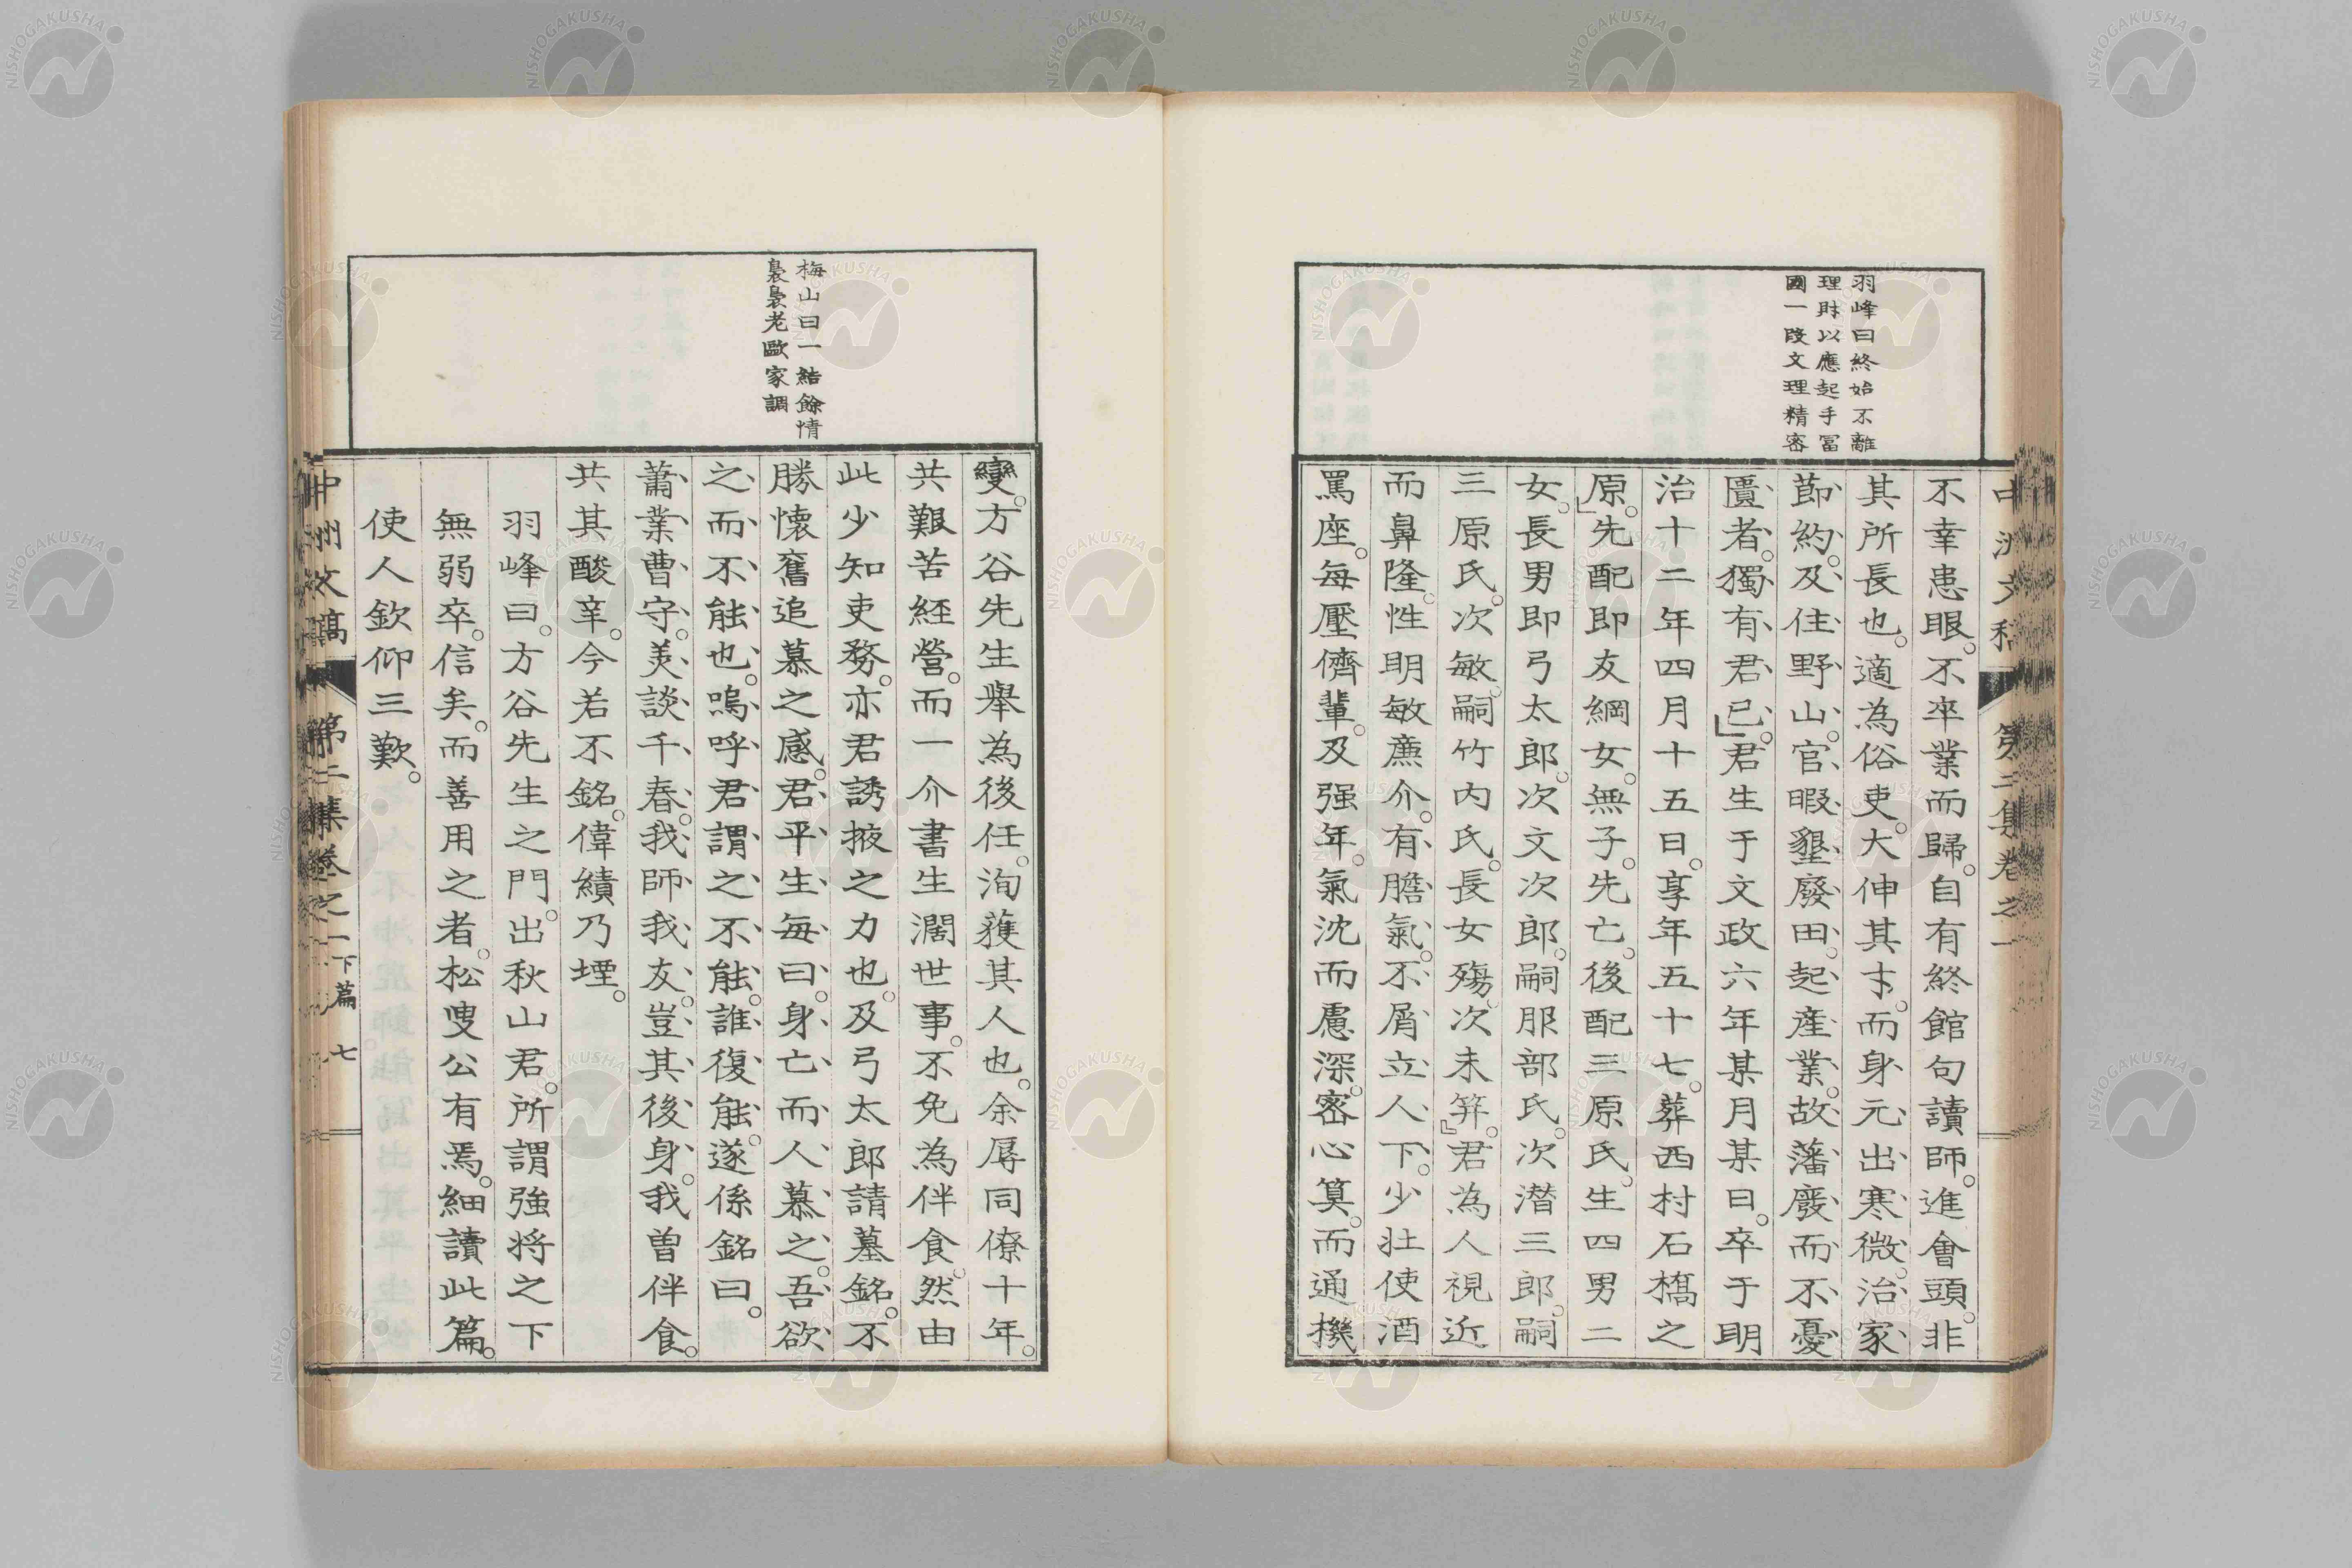 羽峰曰終始不離
理財以應起手冨
國一段文理精密
不幸患眼。不卒業而歸。自有終館句讀師。進會頭。非
其所長也。適為俗吏。大伸其才。而身元出寒微。治家
節約。及住野山。官暇墾廢田。起產業。故藩廢而不憂
匱者。獨有君已。」君生于文政六年某月某日。卒于明
治十二年四月十五日。享年五十七。葬西村石橋之
原。」先配即友綱女。無子。先亡。後配三原氏。生四男二
女。長男即弓太郎。次文次郎。嗣服部氏。次潜三郎。嗣
三原氏。次敏。嗣竹内氏。長女殤。次未笄。」君為人視近
而鼻隆。性明敏廉介。有膽氣。不屑立人下。少壯使酒
罵座。每壓儕輩。及强年。氣沈而慮深。密心算。而通機
中洲文稿 第二集卷之一
梅山曰一結餘情
裊裊老歐家調
變。方谷先生舉為後任。洵獲其人也。余辱同僚十年。
共艱苦經營。而一介書生濶世事。不免為伴食。然由
此少知吏務。亦君誘掖之力也。及弓太郎請墓銘。不
勝懷舊追慕之感。君平生每曰。身亡而人慕之。吾欲
之而不能也。嗚呼君謂之不能。誰復能。遂係銘曰。
蕭業曹守。美談千春。我師我友。豈其後身。我曽伴食。
共其酸辛。今若不銘。偉績乃堙。
羽峰曰。方谷先生之門。出秋山君。所謂強将之下
無弱卒。信矣。而善用之者。松叟公有焉。細讀此篇。
使人欽仰三歎。
中洲文稿 第二集卷之一 下篇 七
NISHOGAKUSHA